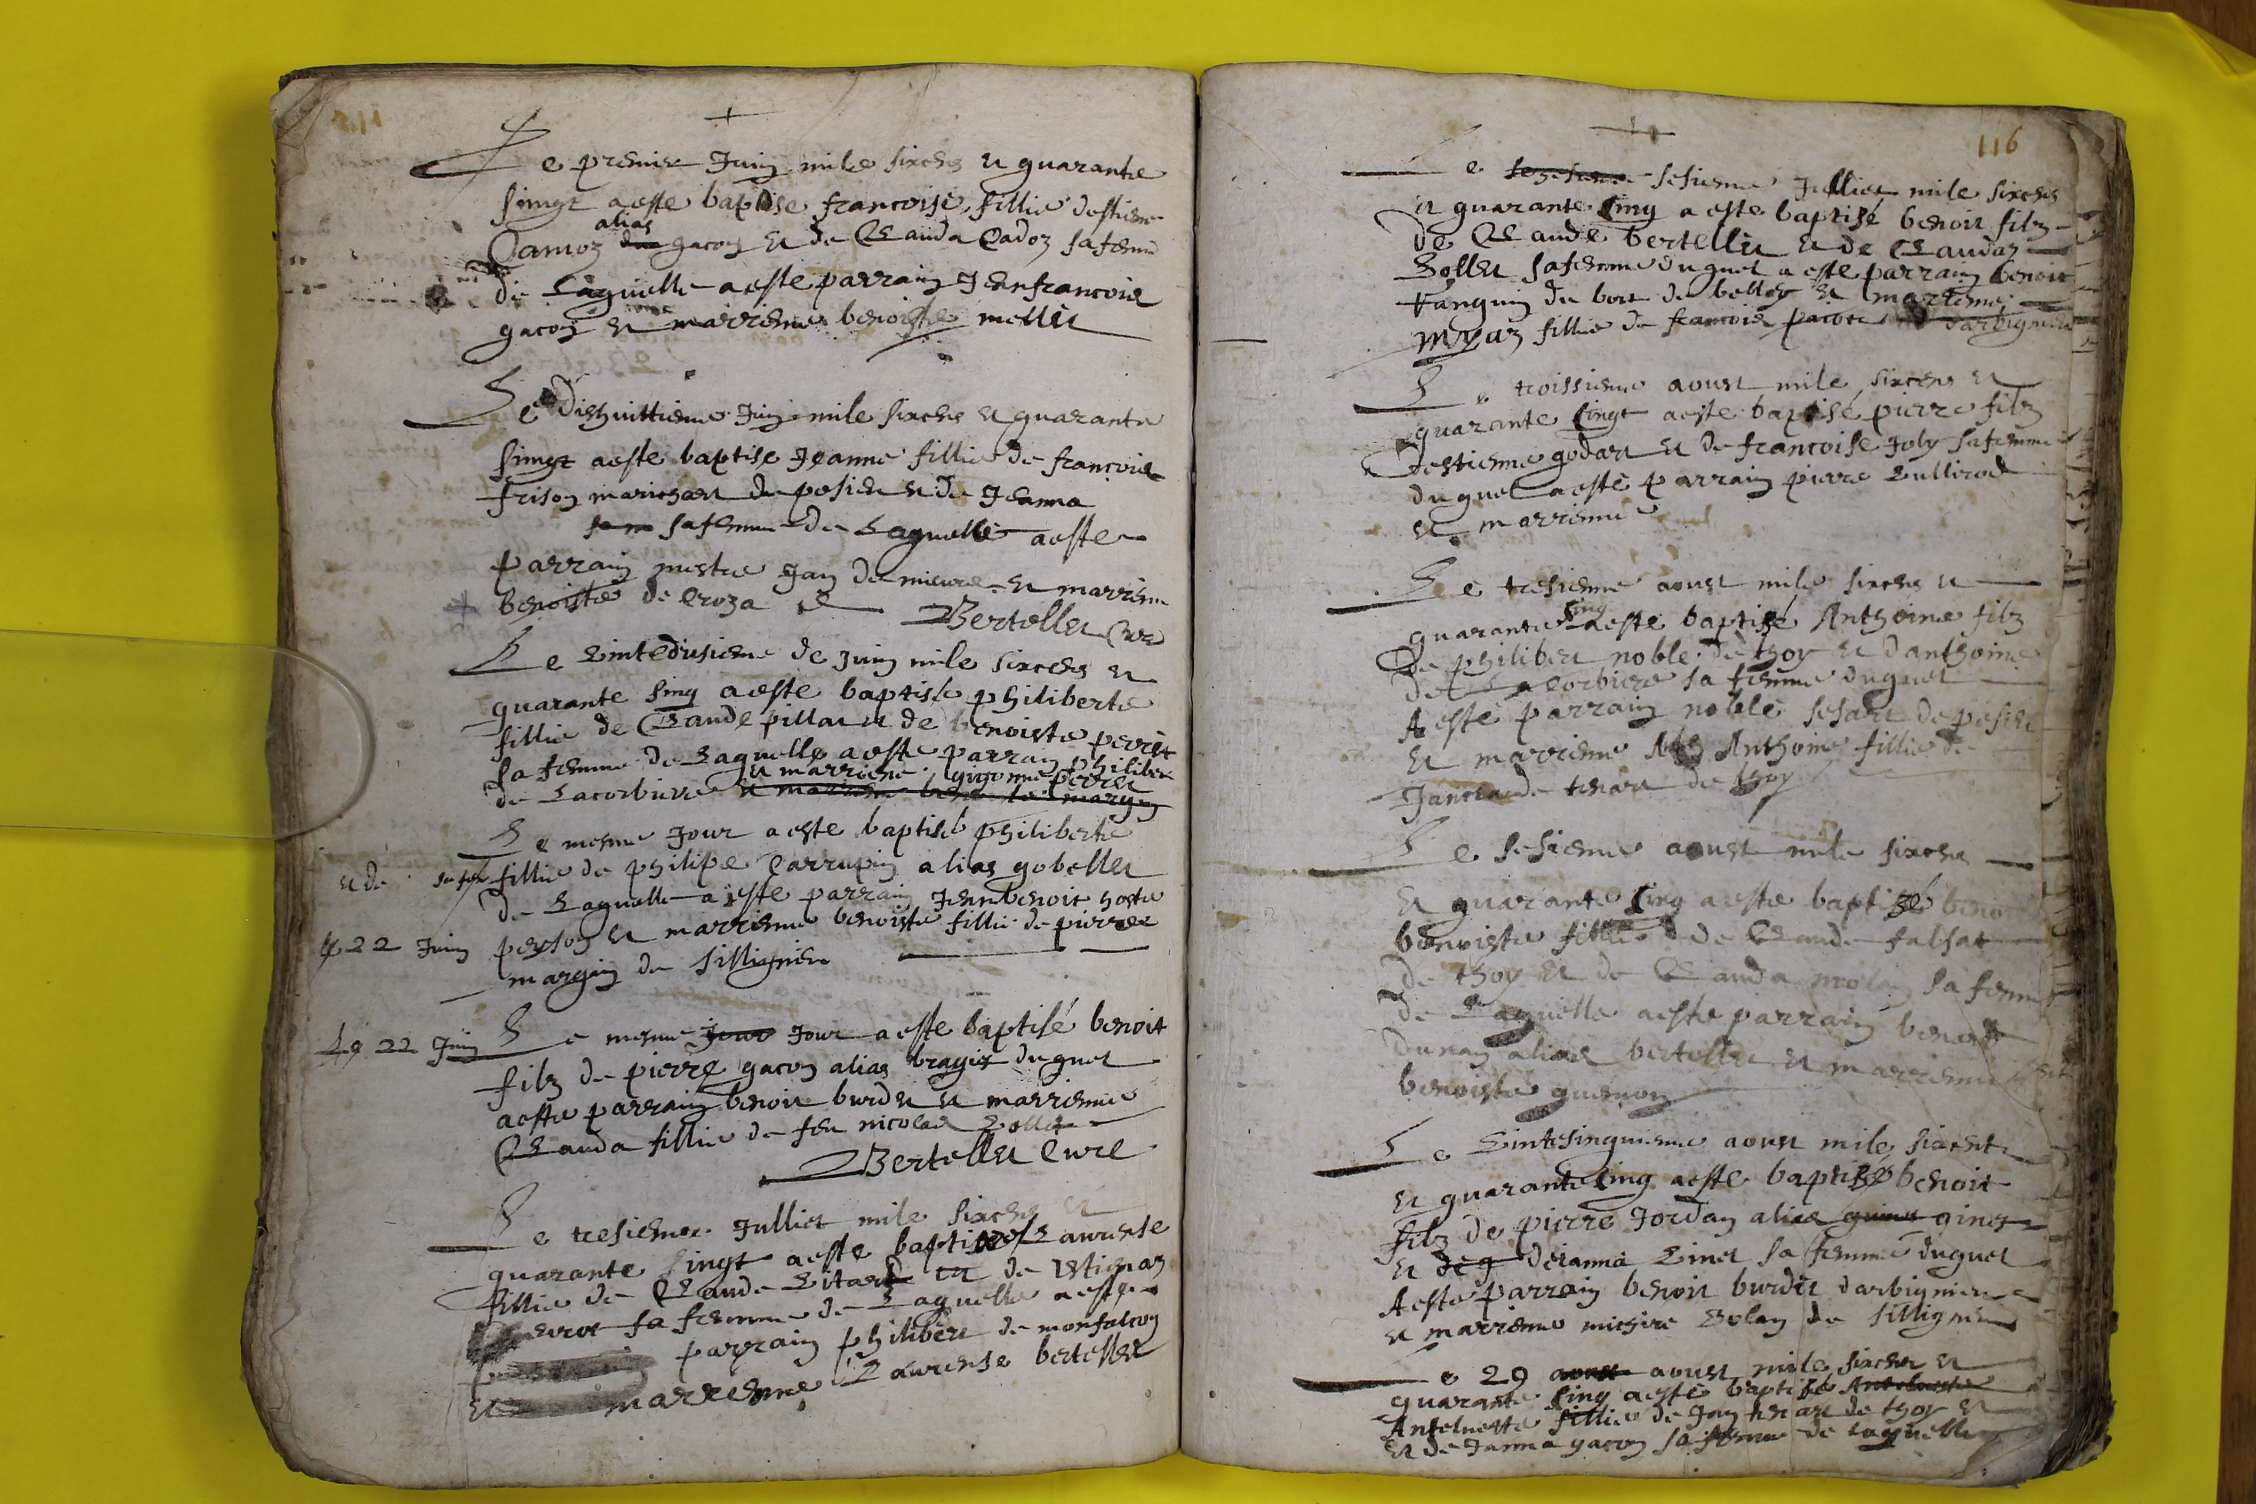 +
Le premier Juin mile sixcens et quarante
singt a este baptise francoise fillie destiene
Camoz alias gacon et de Clauda Cadoz sa feme
de Laquelle a este parrain Jenfrancois
gacon et marrienne benoiste mellet
Le dishuittieme Juin mile sixcens et quarante
singt a este baptise Jeanne fillie de francois
frison marichan de posieu et de Jeanna
sa femme de Laquelle a este
parrain mestre Jan de mieure et marrienne
benoiste de Croza
Bertellet Cure
Le Vintedusieme de Juin mile sixcens et
quarante sinq a este baptise philiberte
fillie de Claude pillat et de benoiste perret
sa femme de Laquelle a este parrain philibert
et marriene perret
de Lacorbiere et marriene
Le mesme Jour a este baptisé philiberte
et de sa fem fillie de philipe Carrupin alias gobellet
de Laquelle a este parrain Jenn benoit hoste
22 Juin peyson et marrienne benoiste fillie de pierre
margin de Sillignieu
Le 22 Juin Le mesme Jour Jour a este baptisé benoit
filz de pierre gacon alias bragis duquel
a este parrain benoit burdet et marrienne
Clauda fillie de feu nicolas Bollet
Bertellet Cure
Le tresiemes Julliet mile sixcens et
quarante singt a este baptise Laurense
fillie de Claude Litard et de
sa femme de Laquelle a este
parrain philibert de monfalcon
et marrienne Laurense bertellet
116
Le sesieme Julliet mile sixcens
et quarante sinq a este baptisé benoit filz
de Claude bertellet et de Claudaz
Bollet sa femme duquel a este parrain benoit
tanguin du bort de belley et marriene
myaz fillie de francois pacote darbignieu
Le troissieme aoust mile sixcens et
quarante singt a este baptisé pierre filz
destienne godart et de francoise Joly sa femme
duquel a esté parrain pierre Bullirod
et marrienne
Le tresieme aoust mile sixcens et
quarante sinq a este baptisé Anthoine filz
de philibert noble de thoy et danthoine
de La Corbiere sa femme duquel
A esté parrain noble sesart de posieu
et marrienne Anthoine fillie de
Janclaude tenart de thoy
Le sesieme aoust mile sixcens
et quarante sinq a este baptizé
benoiste fillie de Claude falsat
de thoy et de Clauda molin sa femme
de Laquelle a este parrain benoit
dunan alias bertellet et marrienne
benoiste guenon
Le Vintesinquieme aoust mile sixcent
et quarante sinq a este baptizé benoit
filz de pierre Jordan alias ginet
et deianna Binet sa femme duquel
A este parrain benoit burdet darbignieu
et marrienne michire Bolan de Sillignieu
Le 29 aoust aoust mile sixcens et
quarante sinq a esté baptisé
Anteluette fillie de Jan tenart de thoy et
et de Janna gacon sa femme de laquelle